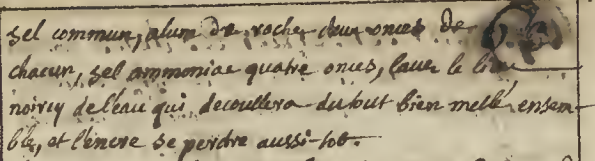 sel commun, alum de roche deux onces de
chacun, sel ammoniac quatre onces, lavez le lieu
noircy de l'eau qui decoullera du tout bien mellé ensem-
ble, et l'encre se perdra aussi-tot.